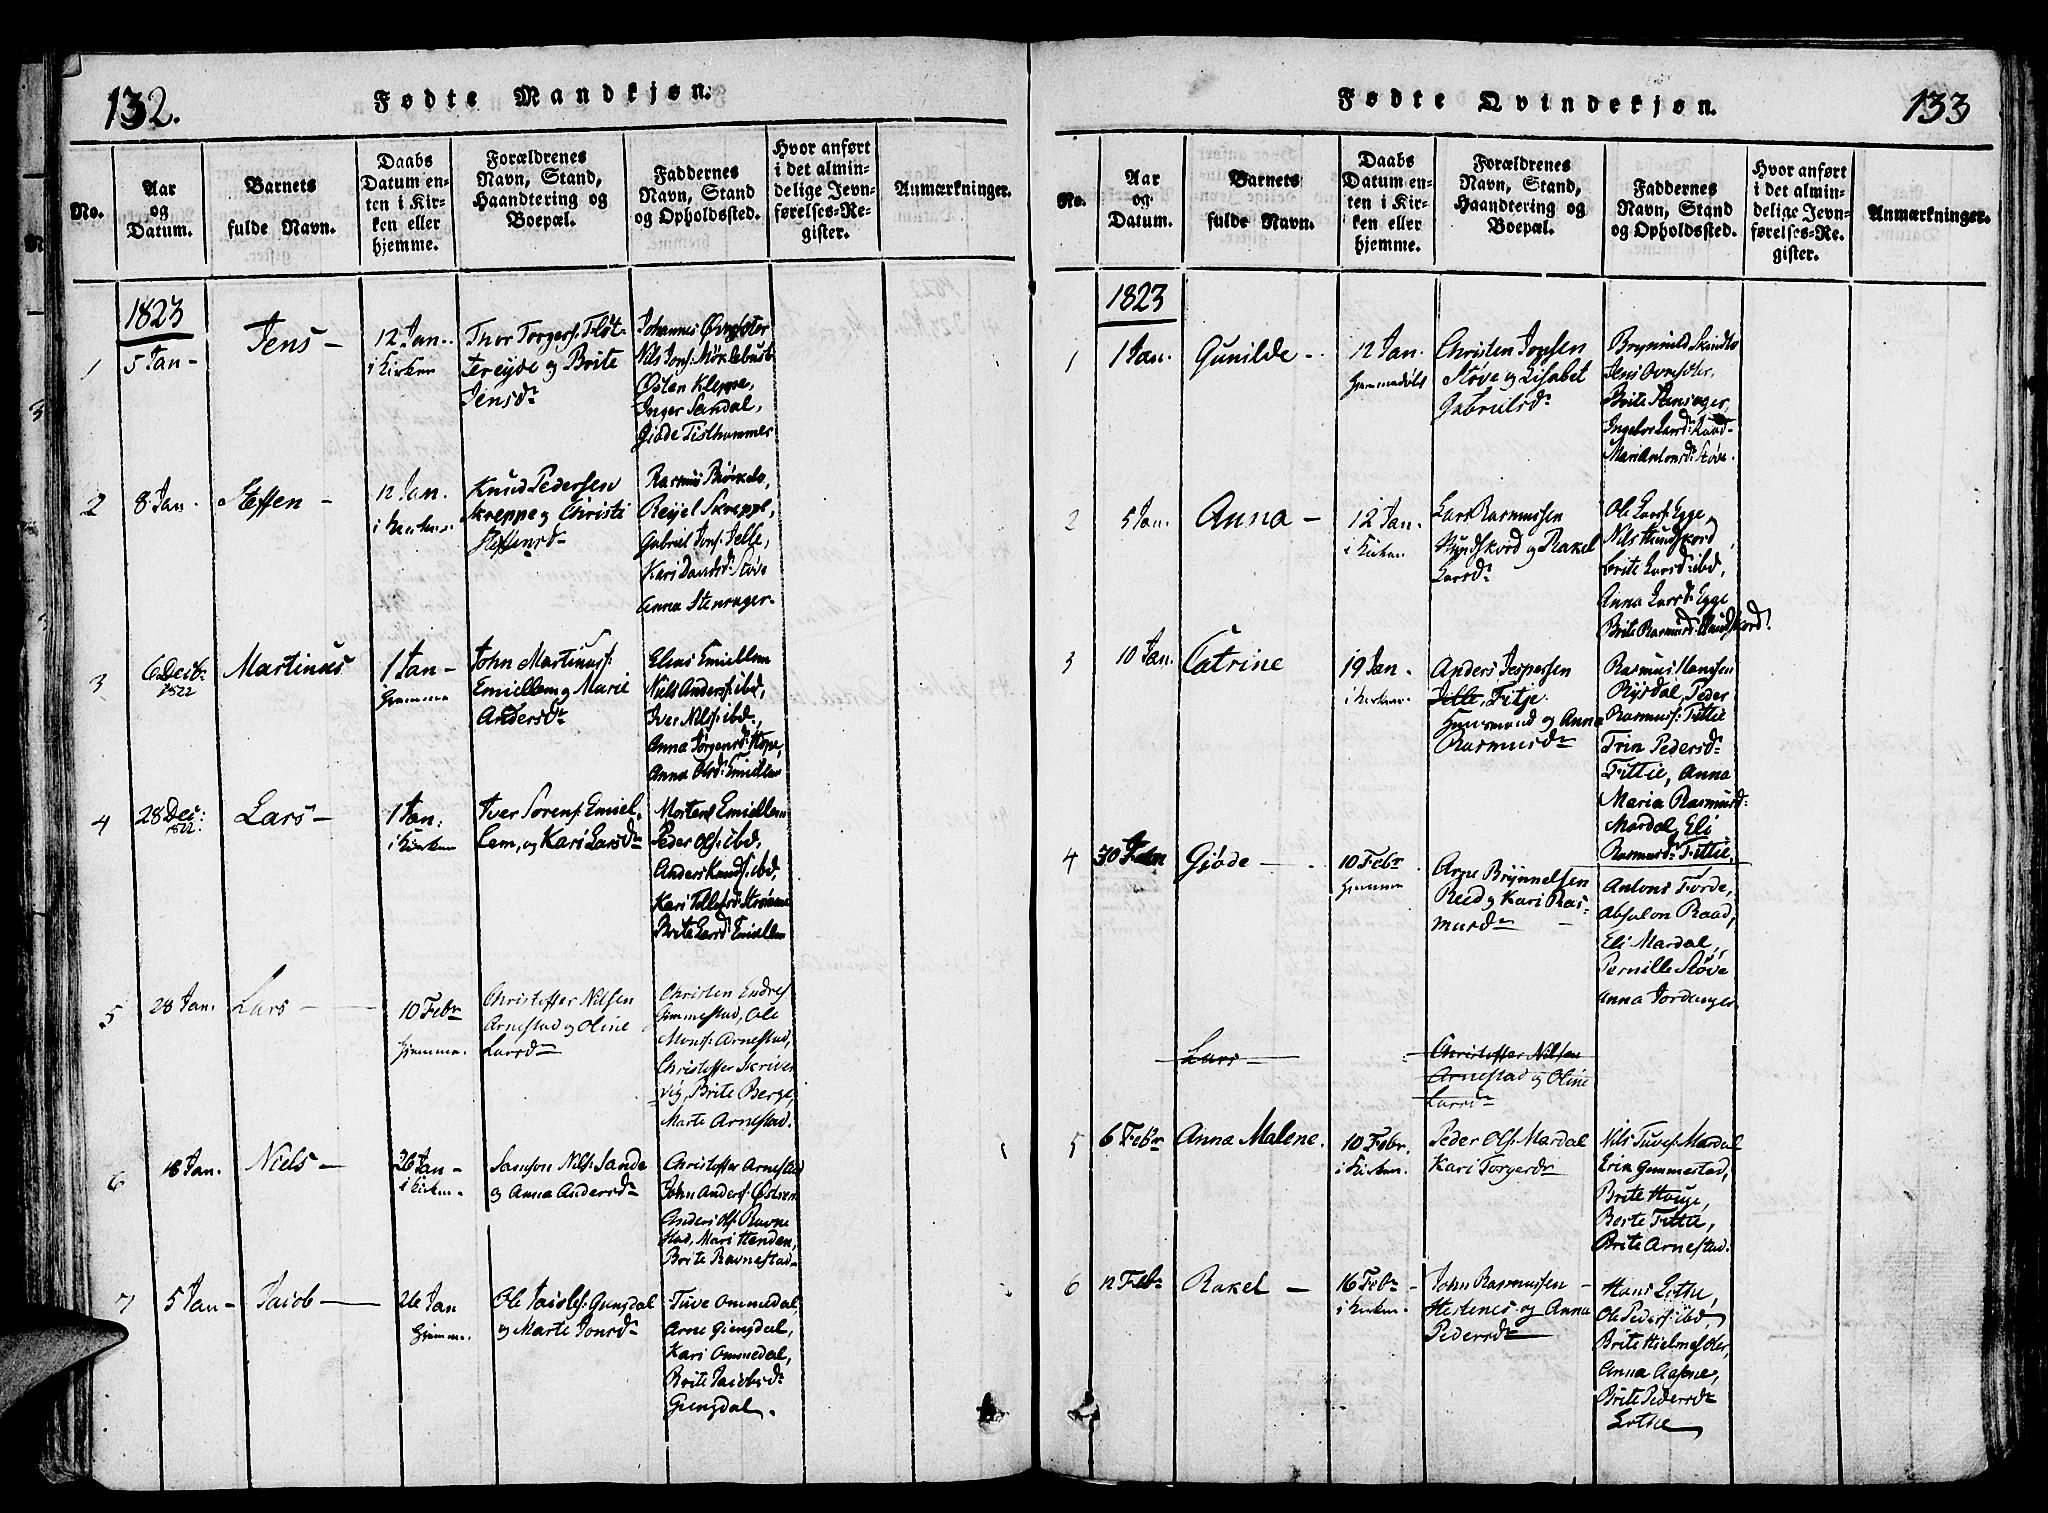 132.
Fødte Mandkjøn.
No.
Aar
og
Datum.
Barnets
fulde Navn.
Daabs
Datum en-
ten i Kir-
ken eller
hjemme.
Forældrenes
Navn, Stand,
Haandtering og
Boepæl.
Faddernes
Navn, Stand
og Opholdssted.
Hvor anført
i det almin-
delige Jevn-
førelses-Re-
gister.
Anmærkninger.
1823
1
5 Jan-
Jens-
12 Jan-
i Kirken
Thor Torgers: Fløt-
tereyde og Brite
Jensdr
Johannes
Nils Jons: Møklebust
Østen Kleppe,
Inger Sandal,
Giøde Fisthammer
2
8 Jan-
Steffen -
12 Jan-
i Kirken
Knud Pedersen
Skreppe og Christi
Steffensdr
Rasmus Biørkelo,
Skreppe,
Gabriel Jons: Jelle,
Kari Davidsd: Støve
Anna Stenrager-
3
6 Decbr:
1822
Martinus
1 Jan-
Hjemme
John Martinus:
Emiellem og Marie
Andersdr
Elias Emiellem
Niels Anders: ibd,
Iver Nils: ibd.,
Anna Jørgensd: Hope,
Anna Olsd: Emiellem
4
28 Dec:
1822.
Lars-
1 Jan:
i Kirken
Iver Sorens: Emiel-
lem, og Kari Larsdr
Morten Emiellem
Peder Ols: ibd,
Anders Knuds: ibd,
Kari Tollefsd: Strømme
Brite Larsd: Emiellem
5
28 Jan.
Lars
10 Febr
Hjemme.
Christoffer Nilsen
Arnestad og Oline
Larsdr
Christen Endres
Gimmestad, Ole
Mons: Arnestad,
Christoffer Skriver
vig, Brite Berge,
Marte Arnestad.
6
18 Jan.
Niels-
26 Jan-
i Kirken.
Samson Nils: Sande
og Anna Andersdr
Christoffer Arnestad
John Anders: Østren
Anders Ols: Ravne
stad, Mari Henden,
Brite Ravnestad-
7
5 Jan-
Jacob
26 Jan
Hjemme.
Ole Jacobs: Gungdal
og Marte Jonsdr
Tuve Ommedal,
Arne Giengdal,
Kari Ommedal,
Brite Jacobsdr
Giengdal.
133
Fødte Qvindekjøn.
No.
Aar
og
Datum.
Barnets
fulde Navn.
Daabs
Datum en-
ten i Kir-
ken eller
hjemme.
Forældrenes
Navn, Stand,
Haandtering og
Boepæl.
Faddernes
Navn, Stand
og Opholdssted.
Hvor anført
i det almin-
delige Jevn-
førelses-Re-
gister.
Anmærkninger.
1823
1
1 Jan.
Gunilde -
12 Jan.
Hjemmedøbt
Christen Jonsen
Støve og Lisabet
Gabrielsdr
Brynnild
Jens
Brite Stensager,
Ingebor Larsd: Raad-
Mari Antonsd: Støve.
2
5 Jan.
Anna -
12 Jan.
i Kirken.
Lars Rasmussen
og Rakel
Larsdr
Ole Lars: Egge,
Nils
Brite Larsd: ibd,
Anna Larsd: Egge
Brite Rasmusd:
3
10 Jan.
Catrine
19 Jan.
i Kirken.
Anders Jespersen
Jelle, Fitje
Huusmand og Anna
Rasmusdr
Rasmus Hansen
Rysdal, Peder
Rasmus: Fittie
Trin Pedersdr
Fittie, Anna
Maria Rasmusd:
Mardal, Eli
Rasmusd: Fittie,
4
30
Giøde -
10 Febr
Hjemme
Arne Brynnelsen
Reed og Kari Ras-
musdr
Antoni Førde,
Absalon Raad,
Eli Mardal,
Pernille Støve
Anna Jordanger
Lars
Christoffer Nilsen
Arnestad og Oline
Larsdr
5
6 Febr
Anna Malene.
10 Febr.
i Kirken.
Peder Ols: Mardal
Kari Torgersdr
Nils Tuves: Mardal
Erik Gemmestad,
Brite Hauge,
Berte Fittie,
Brite Arnestad.
6
12 Febr
Rakel -
16 Febr
i Kirken.
John Rasmussen
Hestenes og Anna
Pedersdr
Hans Lothe,
Ole Peders: ibd,
Brite Hielmeseter,
Anna Aasene,
Brite Pedersdr
Lothe